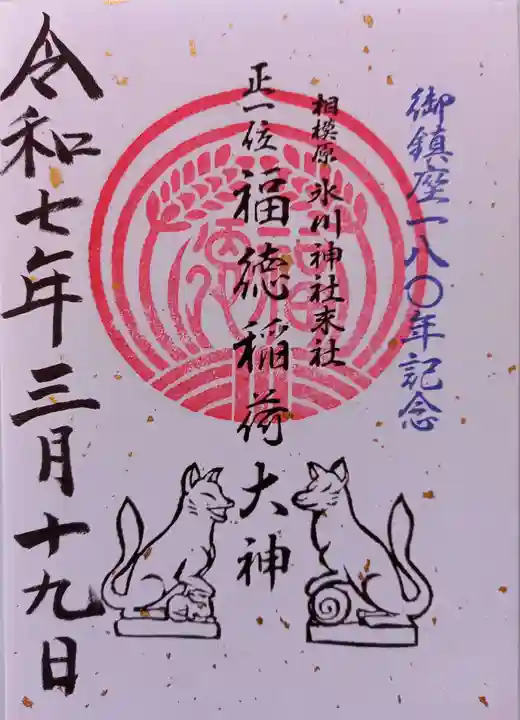 御鎮座一八〇年記念
相模原 氷川神社末社
正一位 福徳稲荷大神
令和七年三月十九日
福徳